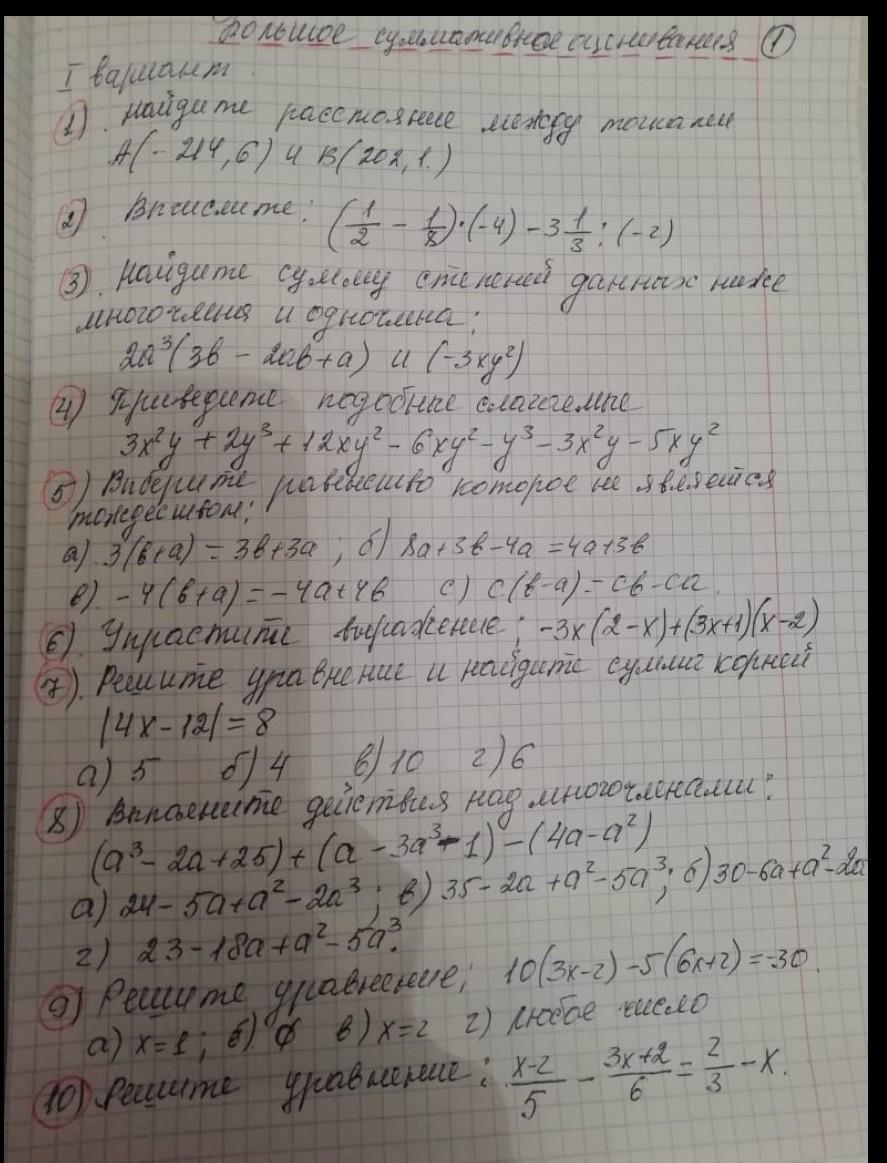 Большое суммативное оценивания 1
I вариант.
1). Найдите расстояние между точками
A(-214,6) и B(202,1.)
2) Вычислите: (1/2 - 1/8)·(-4) - 3 1/3 : (-2)
3). Найдите сумму степеней данных ниже
многочлена и одночлена:
2a³(3b - 2ab + a) и (-3xy²)
4) Приведите подобные слагаемые
3x²y + 2y³ + 12xy² - 6xy² - y³ - 3x²y - 5xy²
5) Виберите равенство которое не является
тождеством:
а). 3(b+a) = 3b+3a ; б) 8a+3b-4a = 4a+3b
в). -4(b+a) = -4a+4b с) c(b-a) = cb-ca.
6). Упрастити выражение; -3x(2-x)+(3x+1)(x-2)
7). Решите уравнение и найдите сумму корней
|4x-12| = 8
а) 5 б) 4 в) 10 г) 6
8) Выполните действия над многочленами:
(a³ - 2a + 25) + (a - 3a³ - 1) - (4a - a²)
а) 24 - 5a + a² - 2a³ ; в) 35 - 2a + a² - 5a³ ; б) 30 - 6a + a² - 2a
г) 23 - 18a + a² - 5a³.
9) Решите уравнение; 10(3x-2) - 5(6x+2) = -30.
а) x=1 ; б). ∅ в) x=2 г) любое число
10) Решите уравнение: (x-2)/5 - (3x+2)/6 = 2/3 - x.